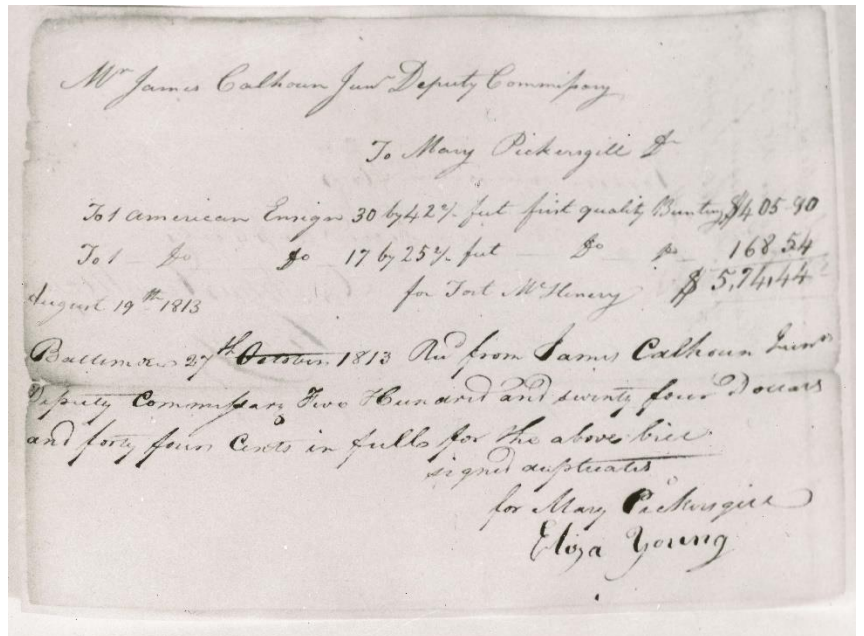 Mr James Calhoun Junr Deputy Commissary
To Mary Pickersgill Dr
To 1 American Ensign 30 by 42 feet first quality Bunting $405.90
To 1 Do Do 17 by 25 feet Do Do 168.54
August 19th 1813 for Fort McHenery $ 5,74,44
Baltimore 27th October 1813 Recd from James Calhoun Junr
Deputy Commissary Five Hundred and seventy four Dollars
and forty four Cents in full for the above bill
signed duplicates
for Mary Pickersgill
Eliza Young